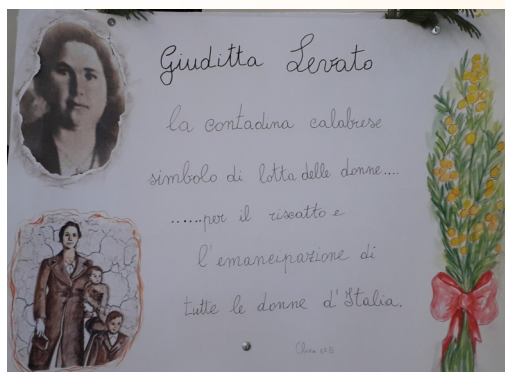 Giuditta Levato
la contadina calabrese
simbolo di lotta delle donne....
......per il riscatto e
l'emancipazione di
tutte le donne d'Italia.